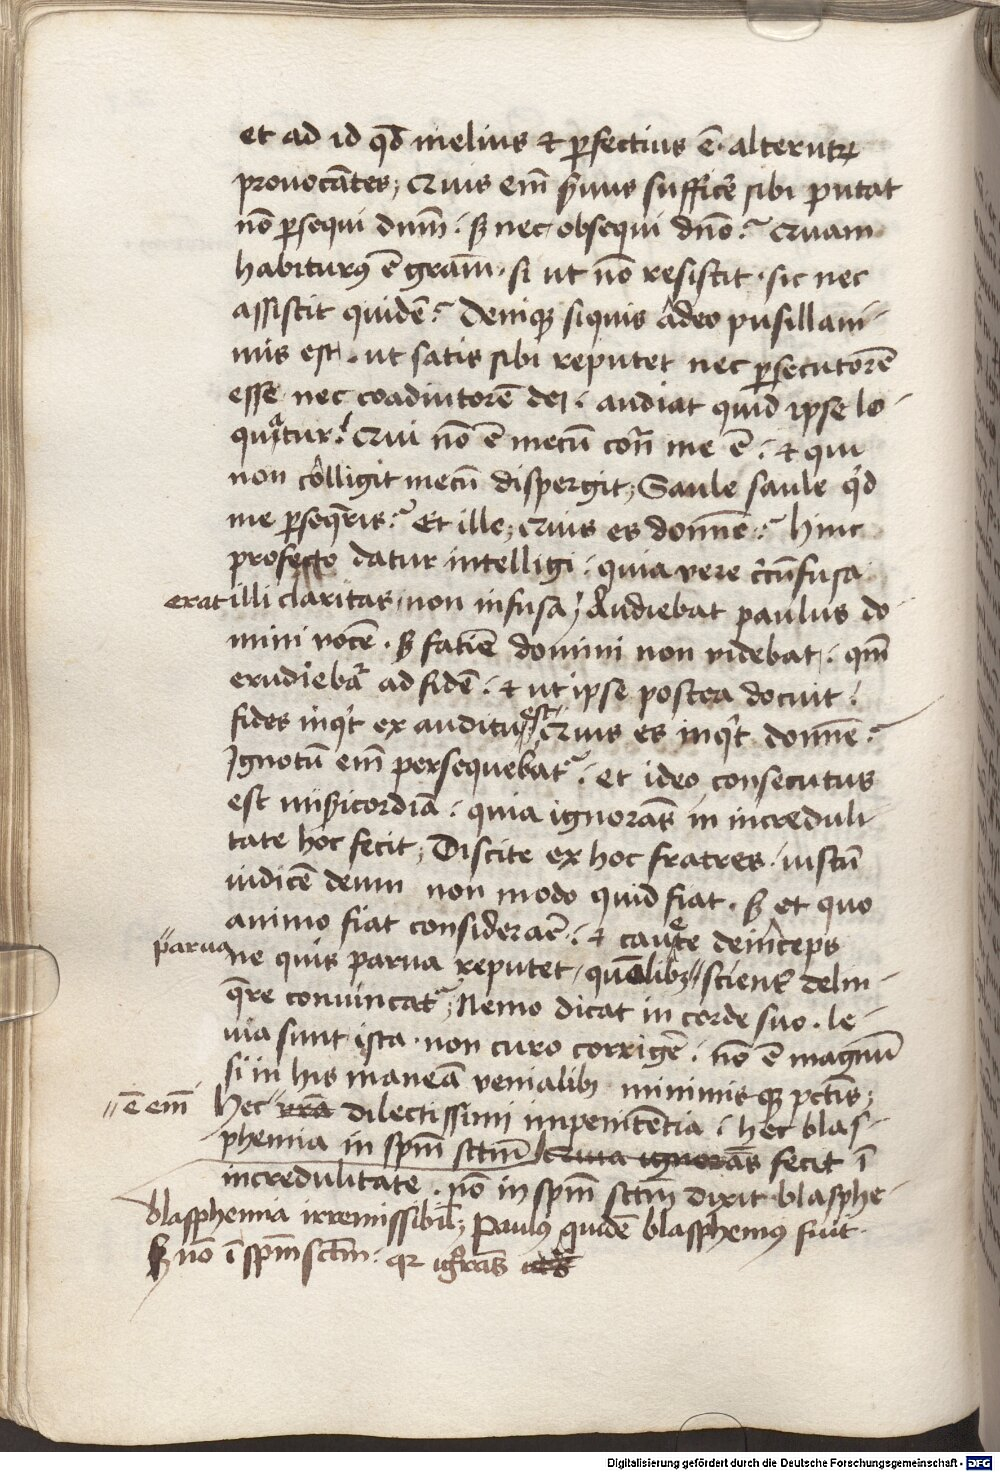 et ad id qd̅ melius & p̱fectius ē · alterutrꝝ
prouocātes; Quis em̅ ẜuus suffic̄e sibi putat
nō p̱sequi dnm̄ : ẜ nec obsequi dn̄o? Quam
habiturꝰ ē grām · si ut nō resistit · sic nec
assistit quidē? Deniqꝫ siquis adeo pusillani-
mis est · ut satis sibi reputet nec p̱secutorē
esse nec coadiutorē dei : audiat quid ipse lo-
quatur? Qui nō ē mecū con̄ me ē : & qui
non colligit mecū dispergit; Saule saule qͥd
me p̱seq̄ris? Et ille; Quis es domn̄e? Hinc
profecto datur intelligi : quia vere cͬcūfusa
erat illi claritas, non infusa; Audiebat paulus do-
mini vocē · ẜ faciē domini non videbat : qm̅
erudiebat̄ ad fidē : & ut ipse postea docuit :
fides inqͥt ex auditu est; Quis es inqͥt domn̄e?
Ignotū em̅ persequebat̄ : et ideo consecutus
est mīẜicordiā : quia ignorās in increduli-
tate hoc fecit; Discite ex hoc fratres · iustū
iudicē deum non modo quid fiat · ẜ et quo
animo fiat considerar̄e : & cauete deinceps
parua ne quis parua reputet, quālibꝫ scient̄ delin-
q̄re conuincat̄; Nemo dicat in corde suo · le-
uia sunt ista · non curo corriger̄e : nō ē magnū
si in his maneā venialibꝫ minimisqꝫ pctīs;
ē em̅ Hec vrā dilectissimi impenitētia : hec blas-
phemia in sp̅m sctm̅ Quia ignorās fecit ī
incredulitate · nō in sp̅m sctm̅ dixit blasphe-
blasphemia irremissibil̄; Paulꝰ quidē blasphemꝰ fuit ·
ẜ nō ī sp̅m sctm̅ · qꝛ igͦrās
Digitalisierung gefördert durch die Deutsche Forschungsgemeinschaft - DFG